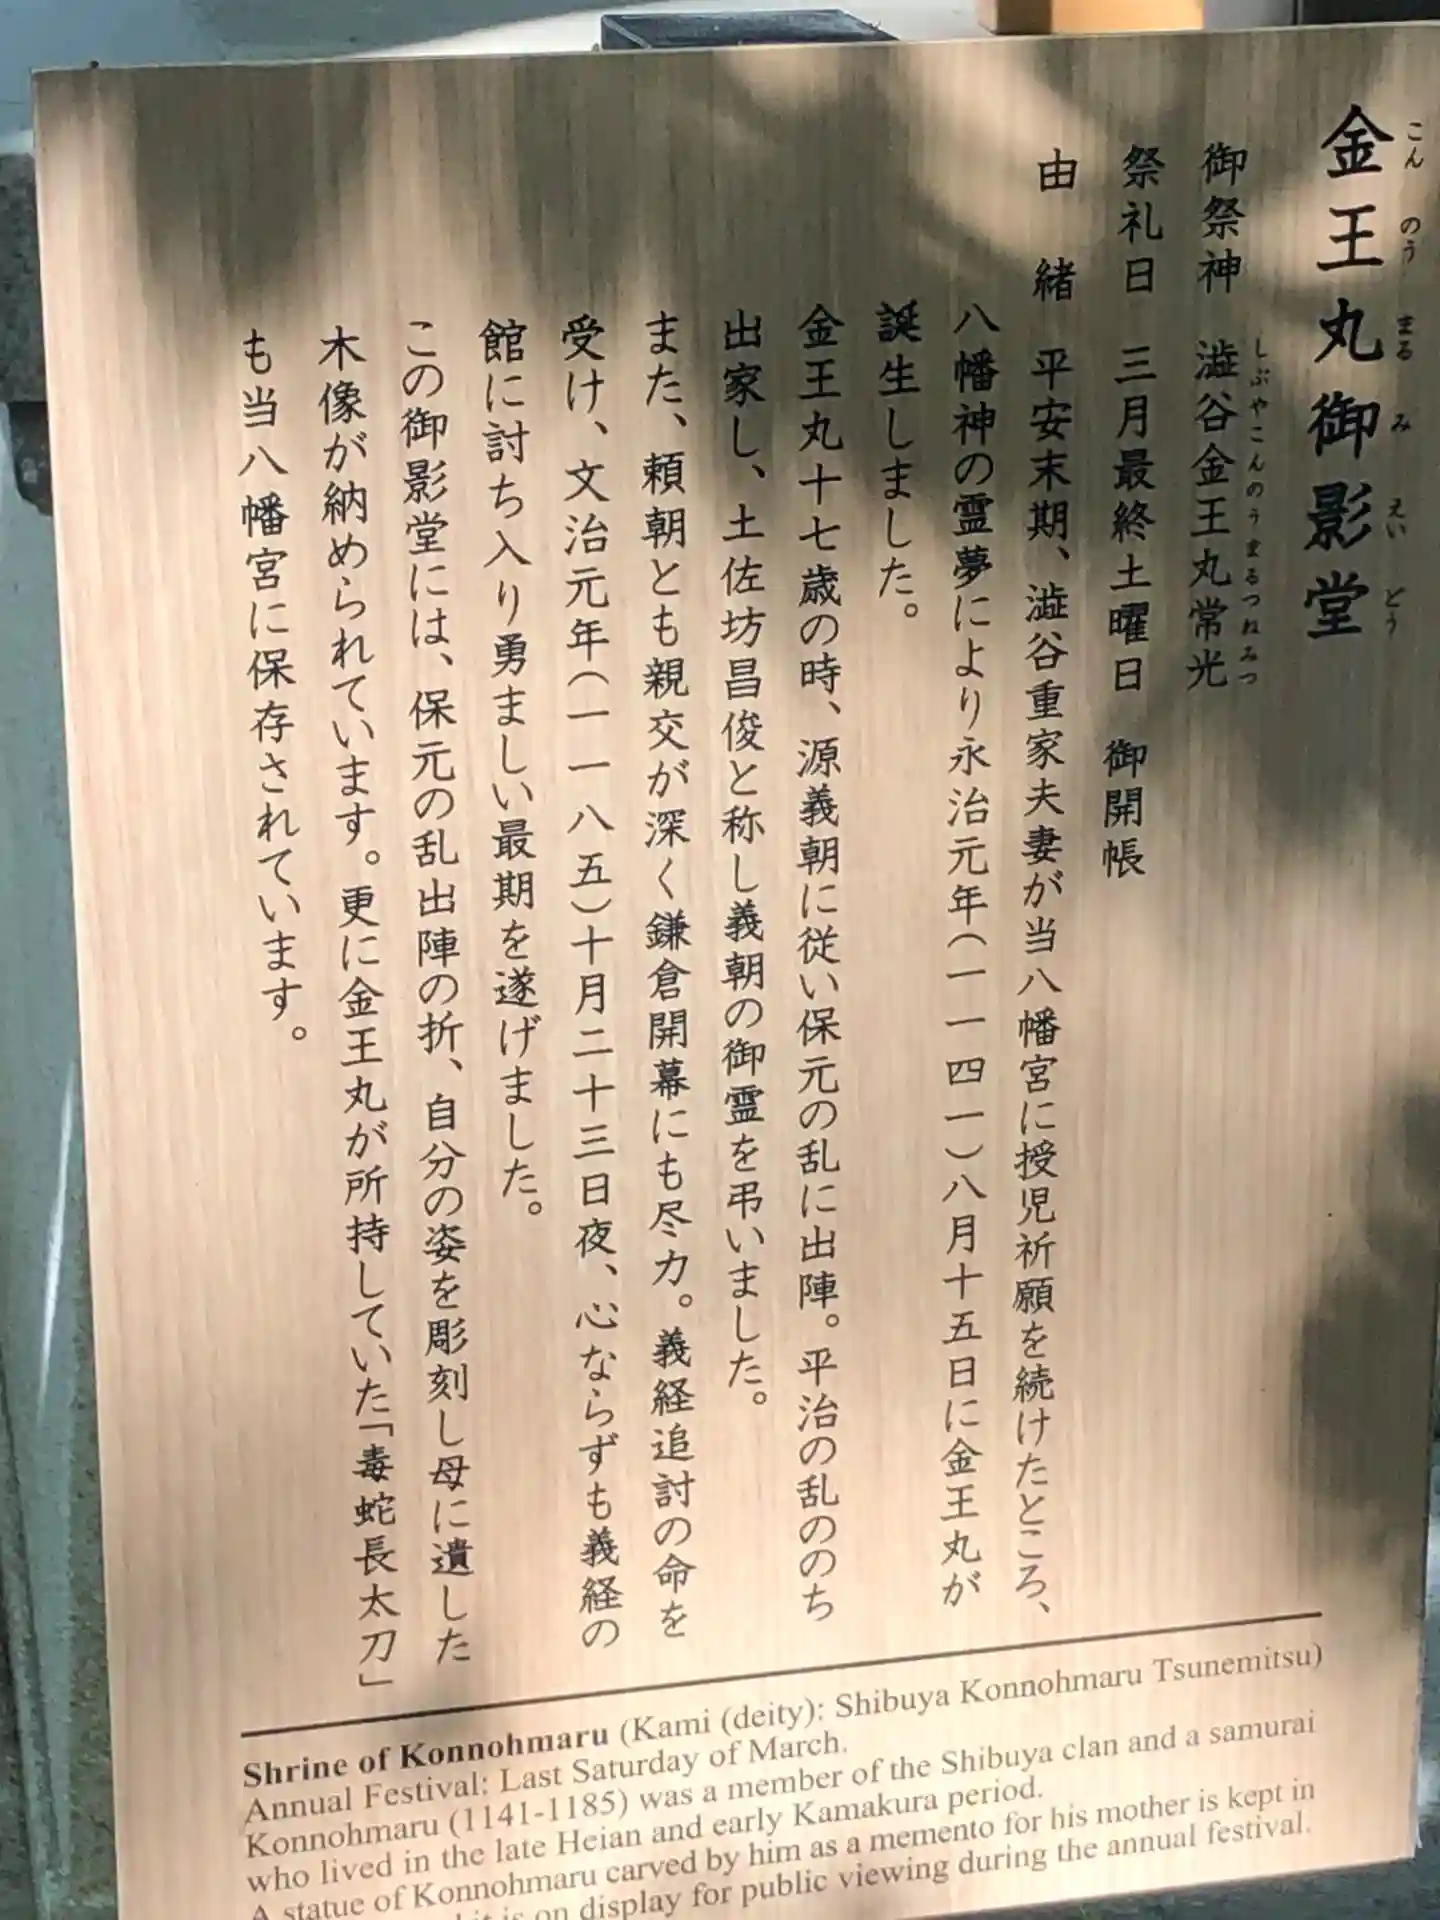 金王丸御影堂
こんのうまるみえいどう
御祭神 澁谷金王丸常光
しぶやこんのうまるつねみつ
祭礼日 三月最終土曜日 御開帳
由緒 平安末期、澁谷重家夫妻が当八幡宮に授児祈願を続けたところ、
八幡神の霊夢により永治元年(一一四一)八月十五日に金王丸が
誕生しました。
金王丸十七歳の時、源義朝に従い保元の乱に出陣。平治の乱ののち
出家し、土佐坊昌俊と称し義朝の御霊を弔いました。
また、頼朝とも親交が深く鎌倉開幕にも尽力。義経追討の命を
受け、文治元年(一一八五)十月二十三日夜、心ならずも義経の
館に討ち入り勇ましい最期を遂げました。
この御影堂には、保元の乱出陣の折、自分の姿を彫刻し母に遺した
木像が納められています。更に金王丸が所持していた「毒蛇長太刀」
も当八幡宮に保存されています。
Shrine of Konnohmaru (Kami (deity): Shibuya Konnohmaru Tsunemitsu)
Annual Festival: Last Saturday of March.
Konnohmaru (1141-1185) was a member of the Shibuya clan and a samurai
who lived in the late Heian and early Kamakura period.
A statue of Konnohmaru carved by him as a memento for his mother is kept in
it is on display for public viewing during the annual festival.